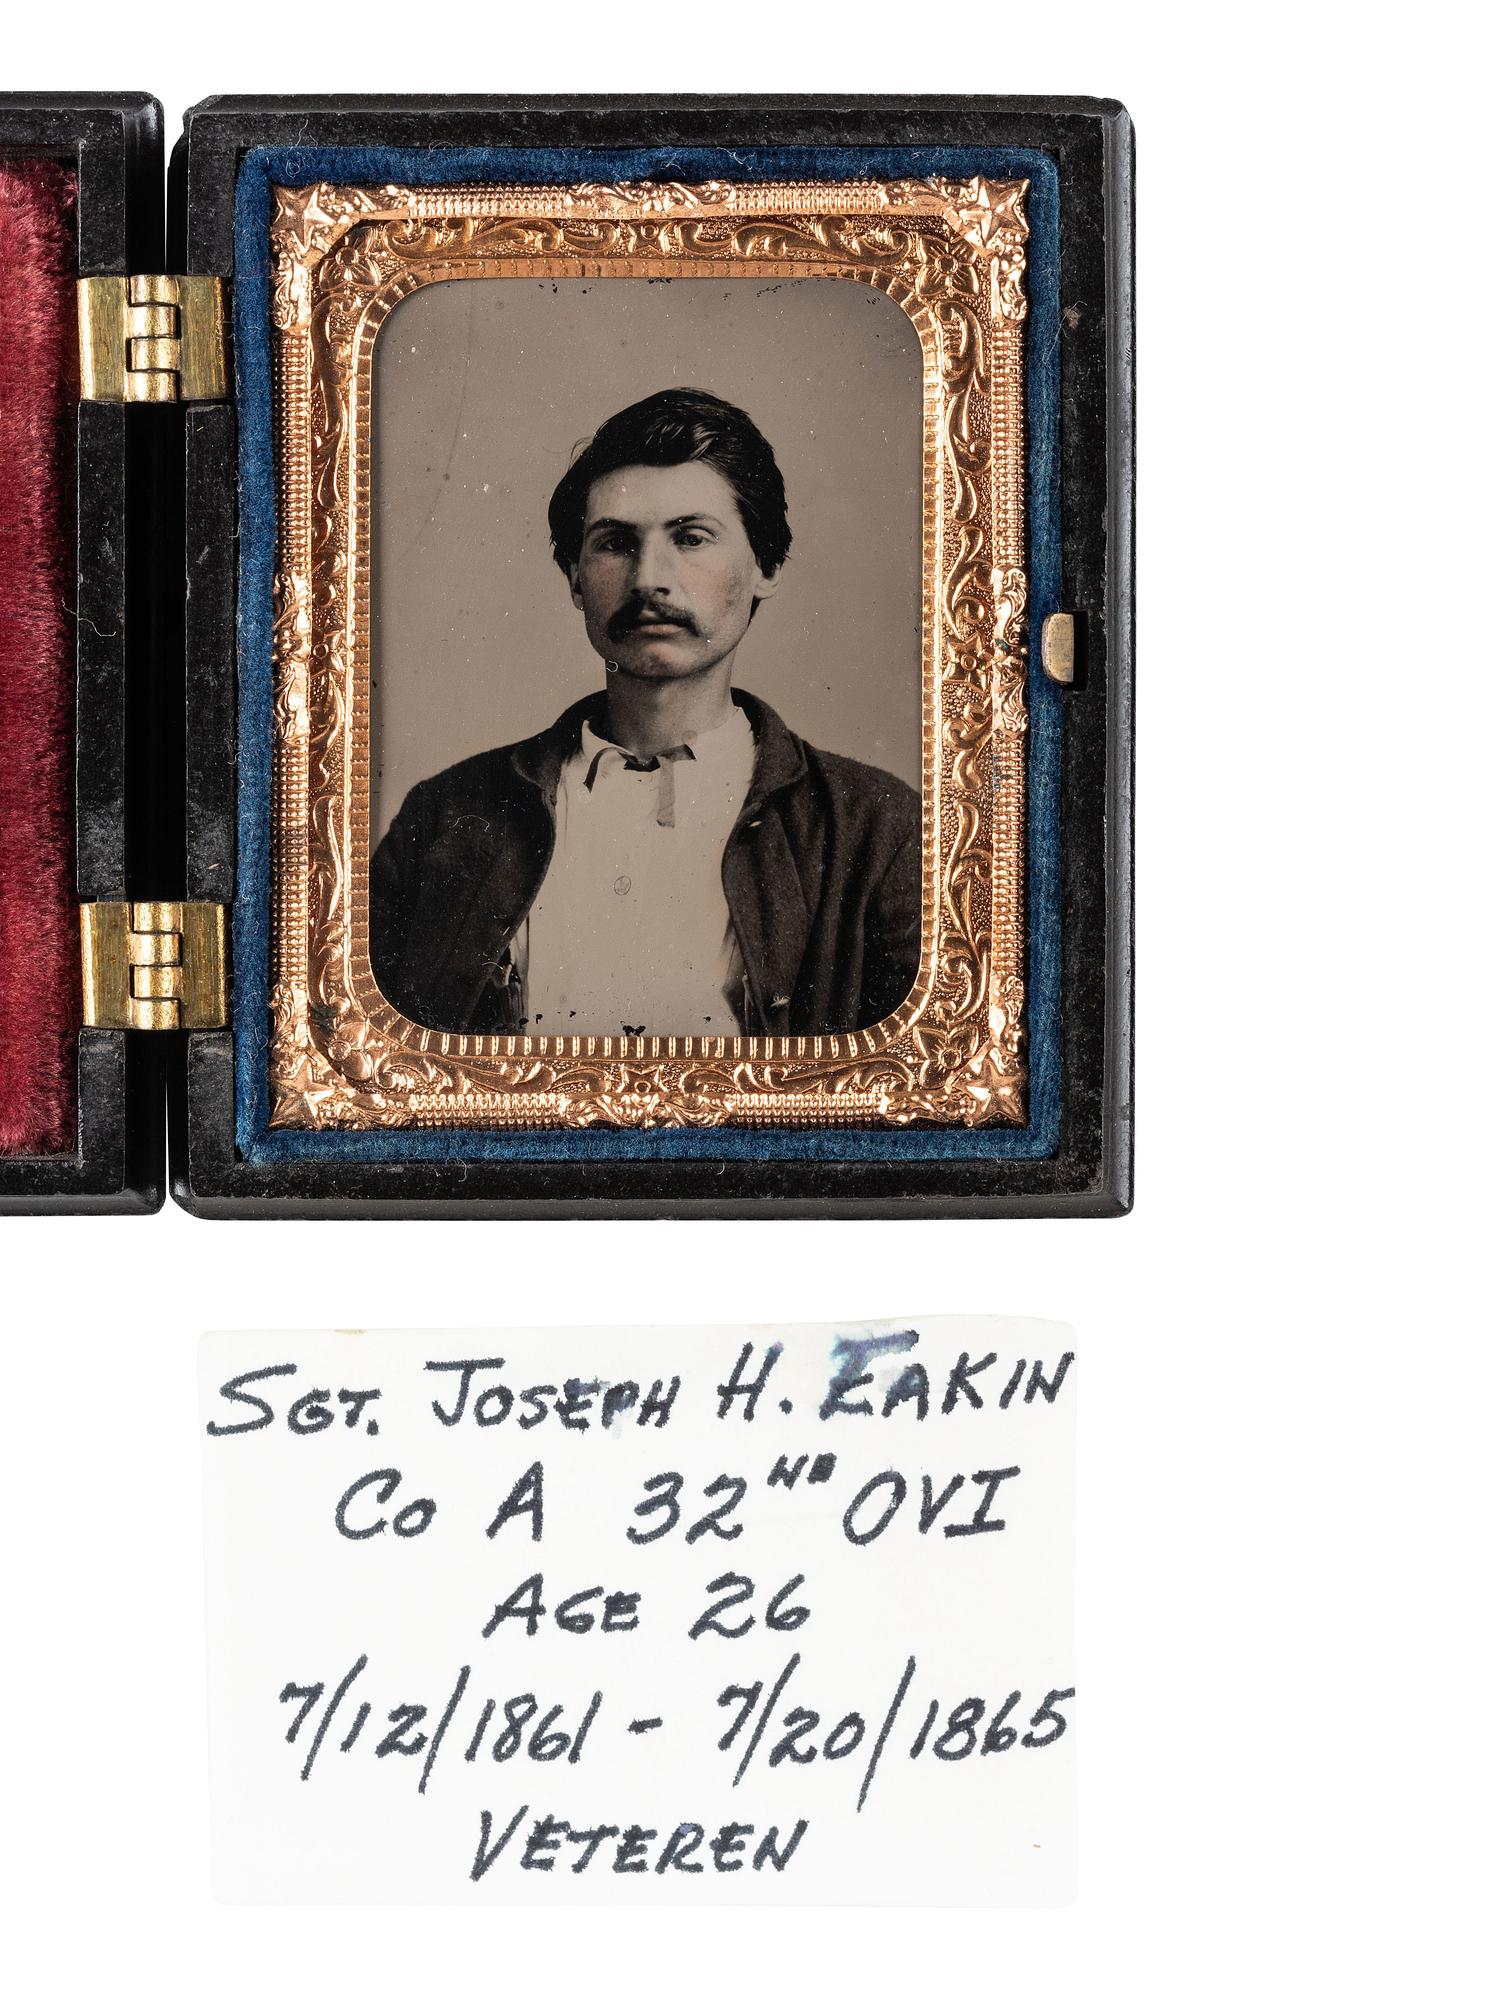 SGT. JOSEPH H. EAKIN
CO A 32ND OVI
AGE 26
7/12/1861 - 7/20/1865
VETEREN